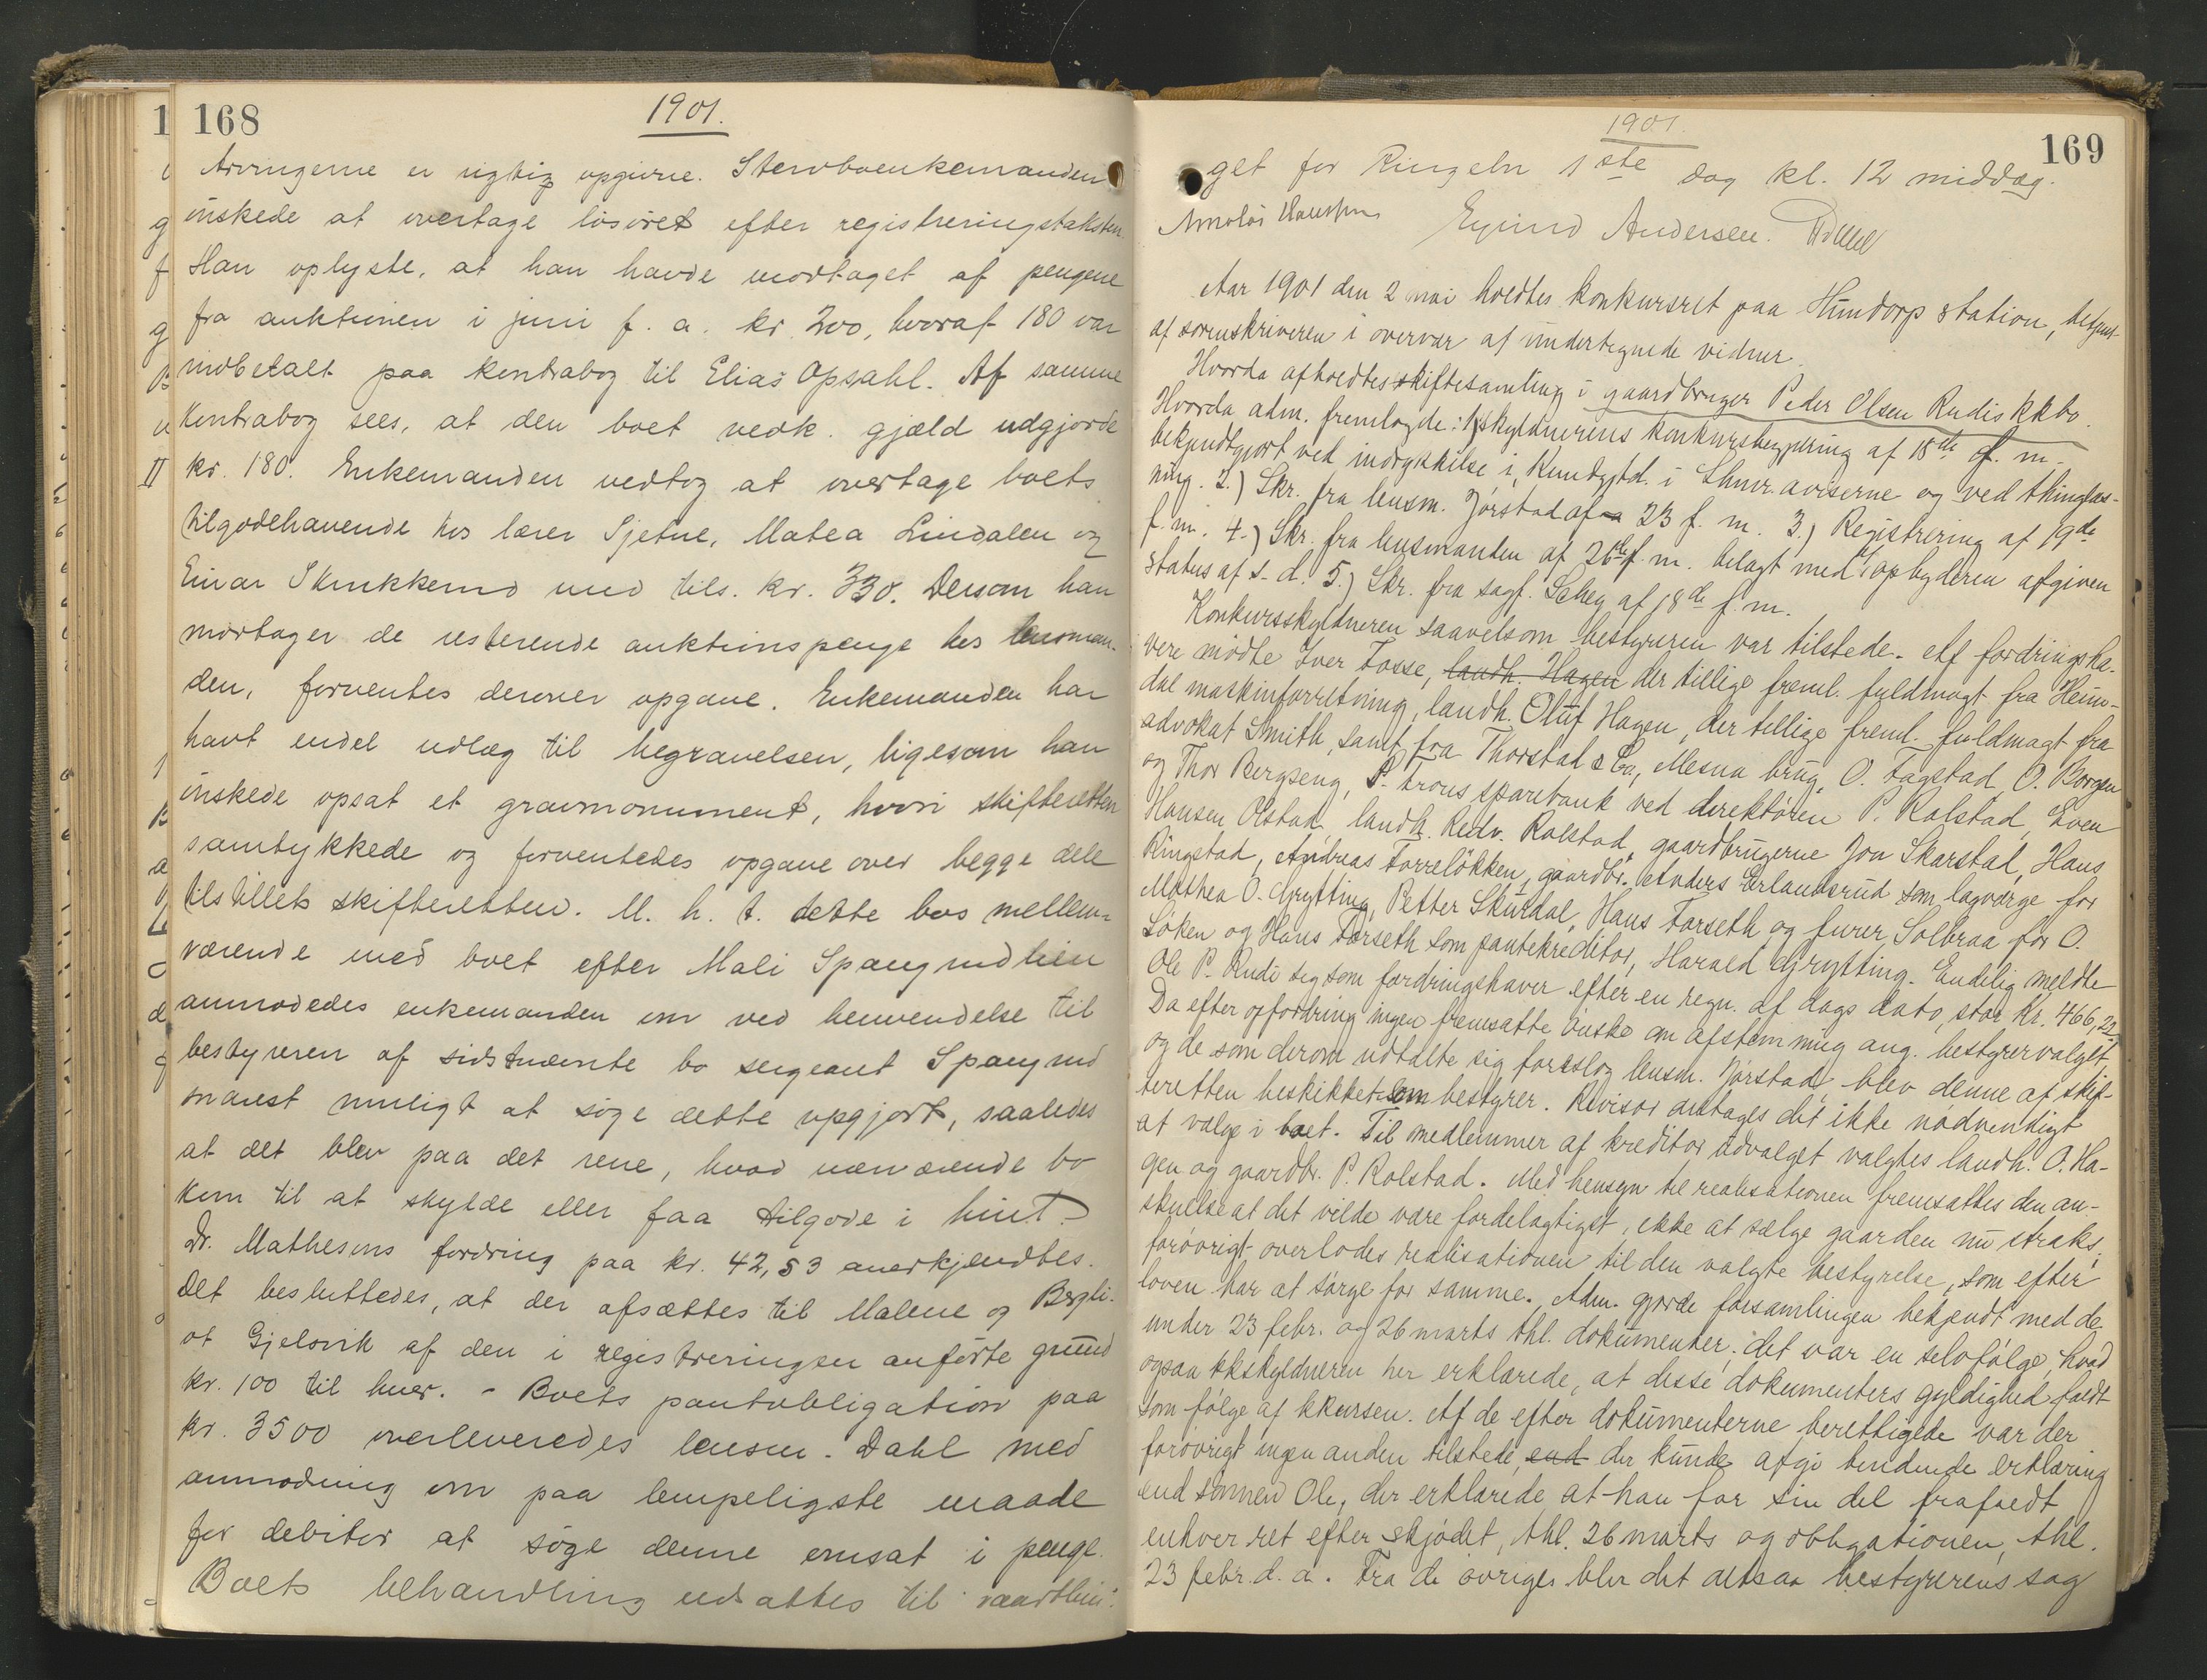 168
1901.
Arvingerne er rigtig opgivne. Stervboenkemanden
ønskede at overtage løsøret efter registreringstaksten.
Han oplyste, at han havde modtaget af pengene
fra auktionen i juni f. a. kr. 200, hvoraf 180 var
indbetalt paa kontrabog til Elias Opsahl. Af samme
Kontrabog sees, at den boet vedk. gjæld udgjorde
kr. 180. Enkemanden vedtog at overtage boets
tilgodehavende hos lærer Sjetne, Matea Lindalen og
Einar Skukkerud med tils. kr. 330. Dersom han
modtager de resterende auktionspenge hos lensman-
den, forventes derover opgave. Enkemanden har
havt endel udlæg til begravelsen, ligesom han
ønskede opsat et gravmonument, hvori skifteretten
samtykkede og forventedes opgave over begge dele
tilstillet skifteretten. M. h. t. dette bos mellem-
værende med boet efter Mali Spangrudlien
anmodedes enkemanden om ved henvendelse til
bestyreren af sidstnævnte bo sergeant Spangrud
snarest muligt at søge dette opgjort, saaledes
at det blev paa det rene, hvad nærværende bo
kom til at skylde eller faa tilgode i hint.-
Dr. Mathesons fordring paa kr. 42,53 anerkjendtes.
Det besluttedes, at der afsættes til Malene og Bergli-
ot Gjelsvik af den i registreringen anførte grund
kr. 100 til hver. - Boets pantobligation paa
kr. 3500 overleveredes lensm. Dahl med
anmodning om paa lempeligste maade
for debitor at søge denne omsat i penge.
Boets behandling udsattes til vaarthin-
1901.
169
get for Ringebu 1ste dag kl. 12 middag.
Eyvind Andersen.
Aar 1901 den 2 mai holdtes konkursret paa Hundorp station, betjent
af sorenskriveren i overvær af undertegnede vidner.
Hvorda afholdtes skiftesamling i gaardbruger Peder Olsen Rudis kkbo.
Hvorda adm. fremlagde: 1) skyldnerens konkursbegjæring af 18de f. m.
bekjendtgjort ved indrykkelse i Kundgjtd. i Lhmr. aviserne og ved thinglæs-
ning. 2.) Skr. fra lensm. Jørstad af 23 f. m. 3.) Registrering af 19de
f. m. 4.) Skr. fra lensmanden af 26de f. m. belagt med opbyderen afgiven
status af s. d. 5.) Skr. fra sagf. Schey af 18de f. m.
Konkursskyldneren saavelsom bestyreren var tilstede. Af fordringsha-
vere mødte Iver Fosse, landh. Hagen der tillige freml. fuldmagt fra Heim-
dal maskinforretning, landh. Oluf Hagen, der tillige freml. fuldmagt fra
advokat Smith, samt fra Thorstad & Co, Mesna brug, O. Fagstad, O. Borgen
og Thor Bergseng, S. Frons sparebank ved direktøren P. Rolstad, Even
Hansen Olstad, landh. Redv. Rolstad, gaardbrugerne Jon Skarstad, Hans
Ringstad, Andreas Forreløkken, gaardbr. Anders Erlandsrud som lagværge for
Mathea O. Grytting, Petter Skurdal, Hans Forseth og furer Solbraa for O.
Løken og Hans Forseth som pantekreditor, Harald Grytting. Endelig meldte
Ole P. Rudi sig som fordringshaver efter en regn. af dags dato, stor kr. 466,22
Da efter opfordring ingen fremsatte ønske om afstemning ang. bestyrervalget,
og de som derom udtalte sig foreslog lensm. Jørstad, blev denne af skif-
teretten beskikket som bestyrer. Revisor antages det ikke nødvendigt
at vælge i boet. Til medlemmer af kreditorudvalget valgtes landh. O. Ha-
gen og gaardbr. P. Rolstad. Med hensyn til realisationen fremsattes den an-
skuelse at det vilde være fordelagtigst, ikke at sælge gaarden nu straks;
forøvrigt overlodes realisationen til den valgte bestyrelse, som efter
loven har at sørge for samme. Adm. gjorde forsamlingen bekjendt med de
under 23 febr. og 26 marts thl. dokumenter; det var en selvfølge, hvad
ogsaa kkskyldneren her erklærede, at disse dokumenters gyldighed faldt
som følge af kkursen. Af de efter dokumenterne berettigede var der
forøvrigt ingen anden tilstede, end der kunde afgi bindende erklæring
end sønnen Ole, der erklærede at han for sin del frafaldt
enhver ret efter skjødet, thl. 26 marts og obligationen, thl.
23 febr. d. a. Fra de øvriges blev det altsaa bestyrerens sag